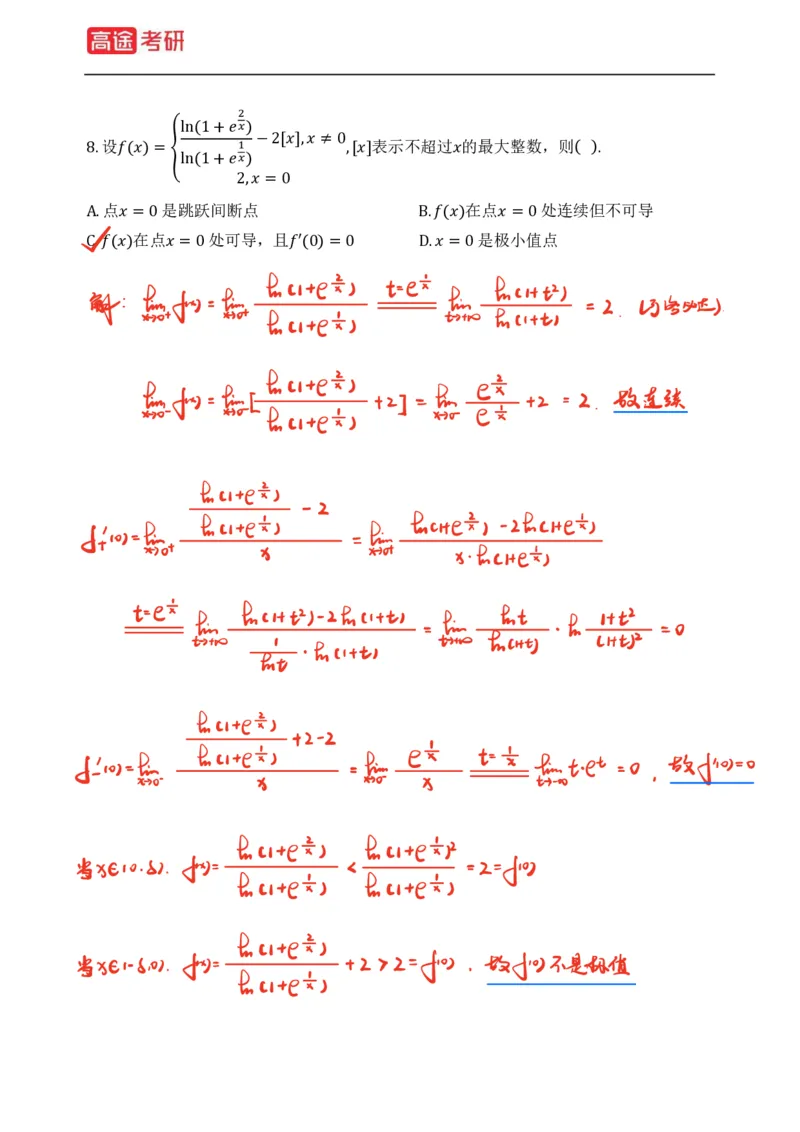 高途考研
8. 设f(x) = { ln(1 + e^{2/x}) / ln(1 + e^{1/x}) − 2[x], x ≠ 0; 2, x = 0 , [x]表示不超过x的最大整数，则( ).
A. 点x = 0 是跳跃间断点 B. f(x)在点x = 0 处连续但不可导
C. f(x)在点x = 0 处可导，且f′(0) = 0 D. x = 0 是极小值点
解: lim_{x→0+} f(x) = lim_{x→0+} ln(1+e^{2/x}) / ln(1+e^{1/x}) ==(t=e^{1/x})== lim_{t→+∞} ln(1+t²) / ln(1+t) = 2. (洛必达).
lim_{x→0-} f(x) = lim_{x→0-} [ ln(1+e^{2/x}) / ln(1+e^{1/x}) +2] = lim_{x→0-} e^{2/x} / e^{1/x} +2 = 2. 故连续
f+′(0) = lim_{x→0+} ( ln(1+e^{2/x}) / ln(1+e^{1/x}) − 2 ) / x = lim_{x→0+} ( ln(1+e^{2/x}) − 2ln(1+e^{1/x}) ) / ( x·ln(1+e^{1/x}) )
==(t=e^{1/x})== lim_{t→+∞} ( ln(1+t²)−2ln(1+t) ) / ( 1/lnt · ln(1+t) ) = lim_{t→+∞} lnt / ln(1+t) · ln (1+t²)/(1+t)² = 0
f-′(0) = lim_{x→0-} ( ln(1+e^{2/x}) / ln(1+e^{1/x}) +2−2 ) / x = lim_{x→0-} e^{1/x} / x ==(t=1/x)== lim_{t→-∞} t·e^t = 0, 故f′(0)=0
当x∈(0,δ). f(x)= ln(1+e^{2/x}) / ln(1+e^{1/x}) < ln(1+e^{1/x})² / ln(1+e^{1/x}) = 2 = f(0)
当x∈(-δ,0). f(x)= ln(1+e^{2/x}) / ln(1+e^{1/x}) +2 > 2 = f(0). 故f(0)不是极值